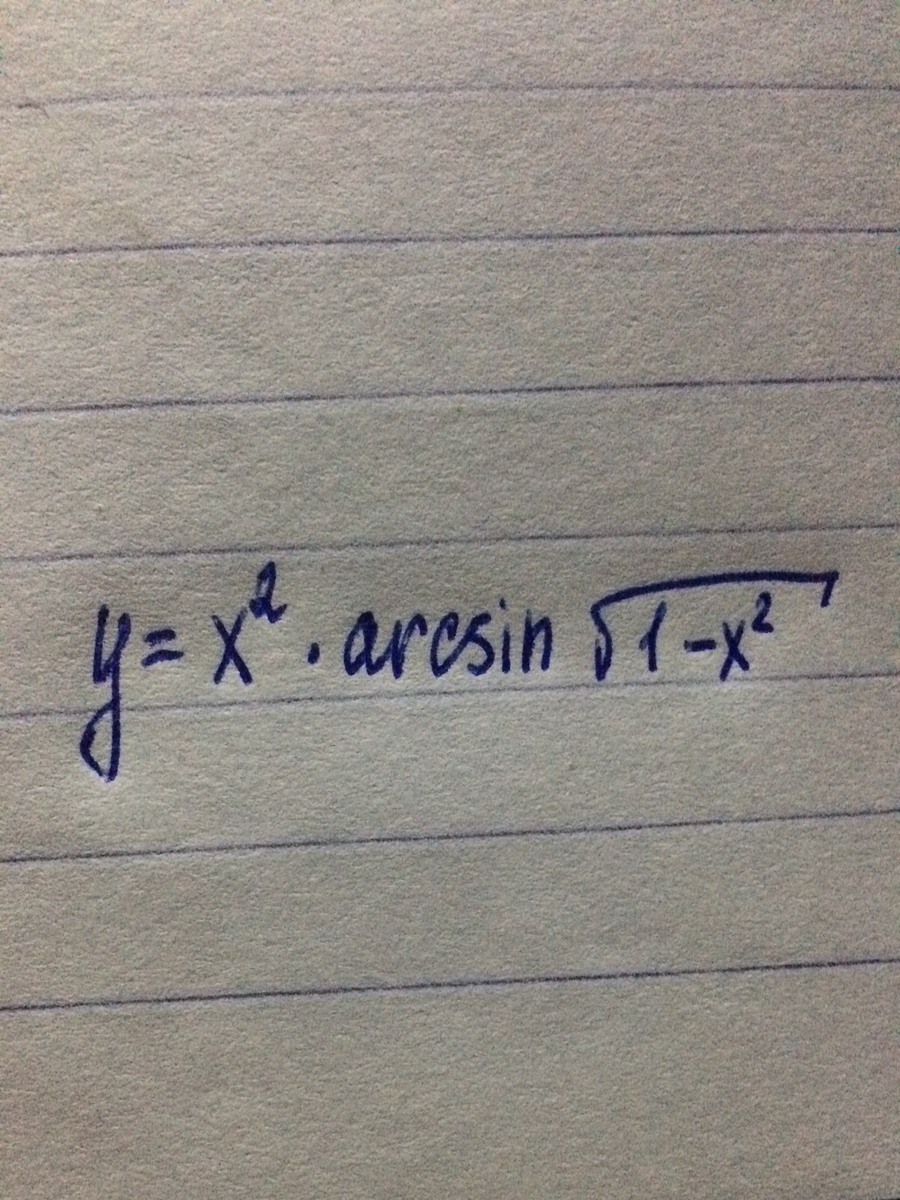 y = x² · arcsin √(1-x²)